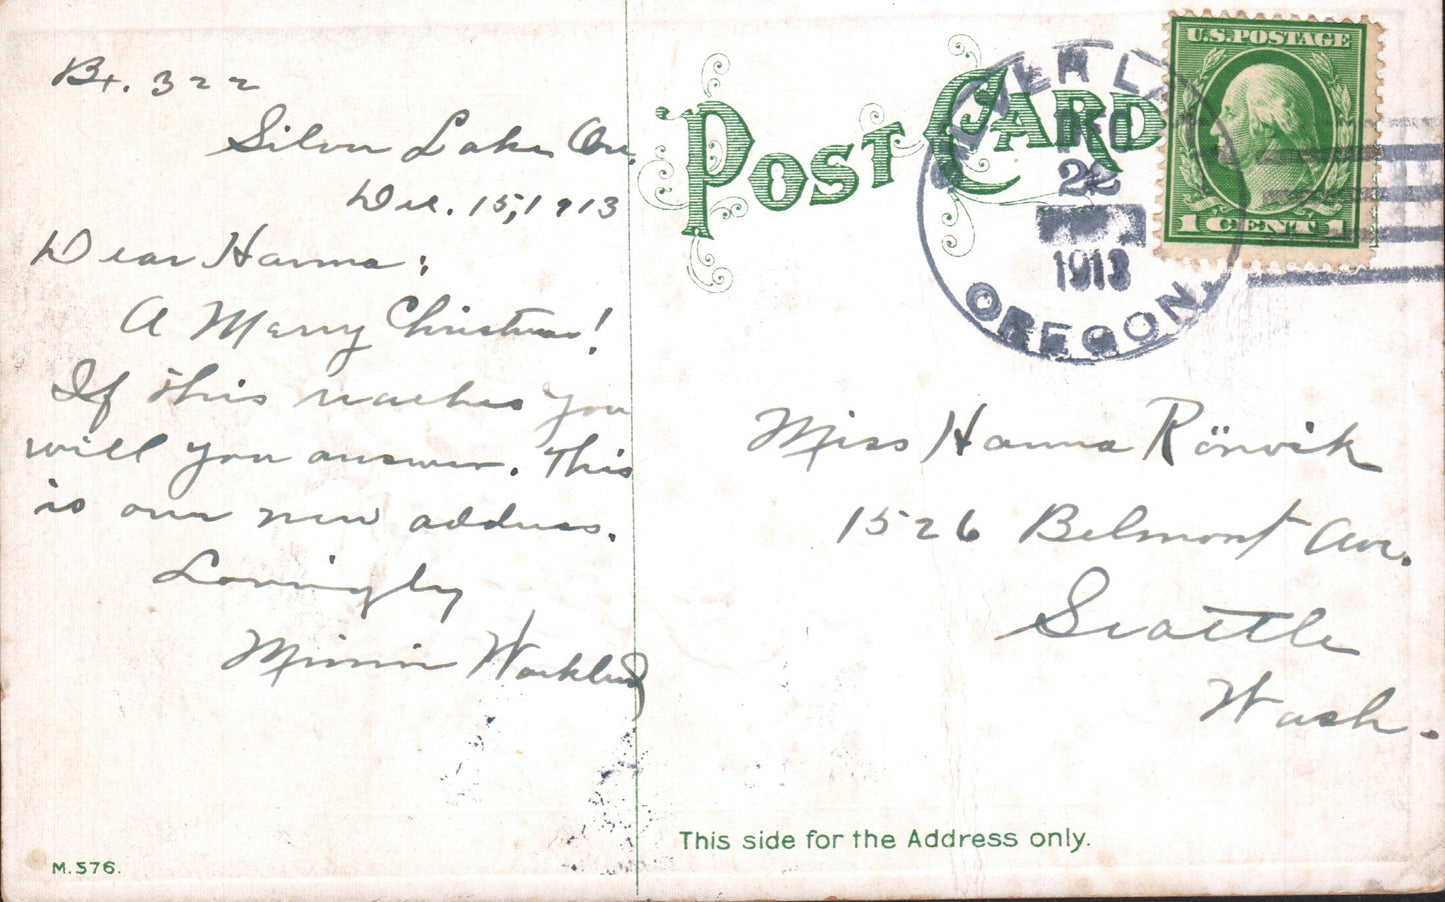 Bx. 322
Silver Lake, Or.
Dec. 15, 1913
Dear Hanna:
A Merry Christmas!
If this reaches you
will you answer. This
is our new address.
Lovingly
Minnie
M. 576.
POST CARD
SILVER LAKE
DEC
22
1913
OREGON.
U.S. POSTAGE
1 CENT 1
Miss Hanna Rönvik
1526 Belmont Ave.
Seattle
Wash.
This side for the Address only.